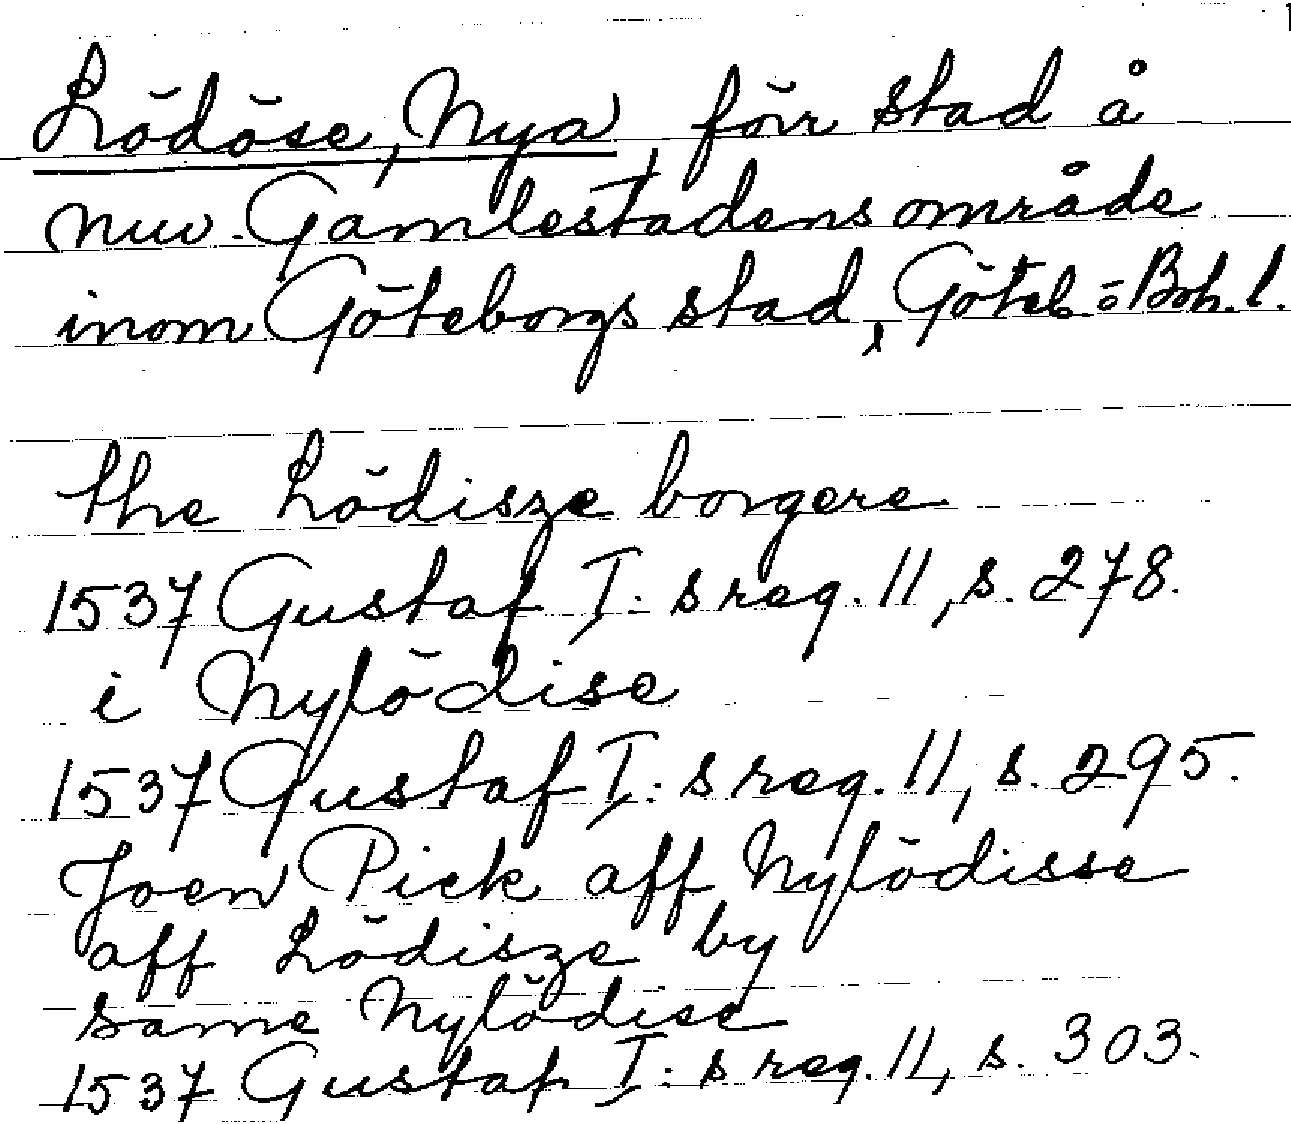 Lödöse, Nya, förr stad å
nuv. Gamlestadens område
inom Göteborgs stad, Göteb o Boh. l.
the Lödisze borgere
1537 Gustaf I:s reg. 11, s. 278.
i Nylödise
1537 Gustaf I:s reg. 11, s. 295.
Joen Pick aff Nylödisse
aff Lödisze by
same Nylödise
1537 Gustaf I:s reg. 11, s. 303.